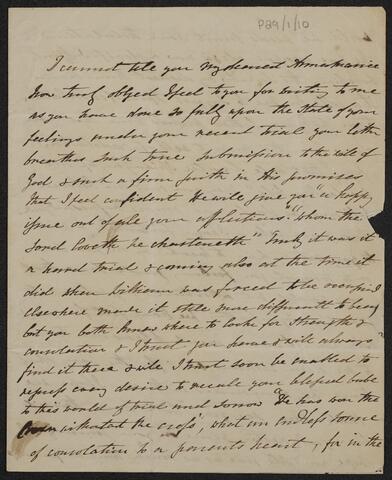 P29/1/10
I cannot tell you My dearest Annamaria
how truly obliged I feel to you for writing to me
as you have done so fully upon the State of your
feelings under your recent trial your letter
breathes such true submission to the will of
God & such a firm faith in His promises
that I feel confident He will give you "a happy
issue out of all your afflictions". "Whom the
Lord loveth he chasteneth" Truly it was
a hard trial & coming also at the time it
did when William was forced to be
elsewhere made it still more difficult to bear
but you both know where to look for strength &
consolation & I trust you have & will always
find it there & will I trust soon be enabled to
repress every desire to recall your blessed babe
to this world of trial and sorrow "He has won the
Crown without the cross", what an endless source
of consolation to a parents heart, for in the